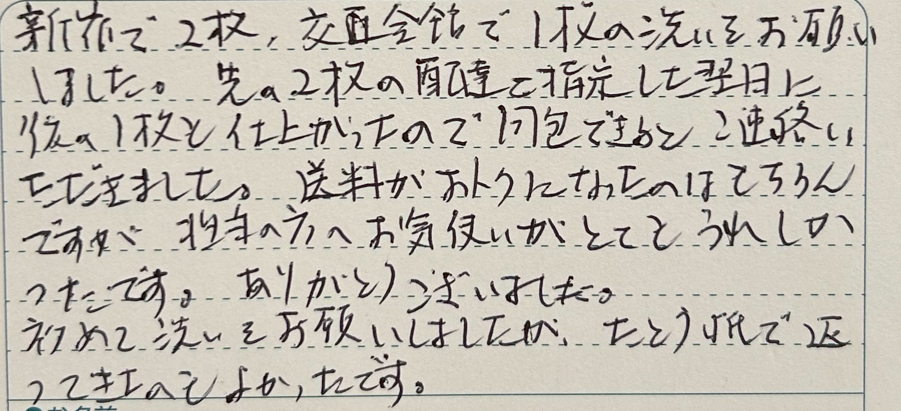 新宿で2枚、交通会館で1枚の洗いをお願い
しました。先の2枚の配達を指定した翌日に
後の1枚も仕上がったので同包できると ご連絡い
ただきました。送料がおトクになったのはもちろん
ですが 担当の方のお気使いがとてもうれしか
ったです。ありがとうございました。
初めて洗いをお願いしましたが、たとう紙で返
ってきたのもよかったです。
お名前